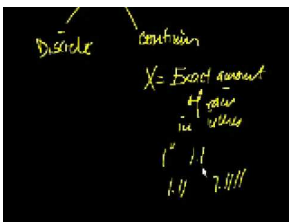 Discrete contain
X = Exact amount
of rain
in inches
1" 1.1
1.11 7.1111